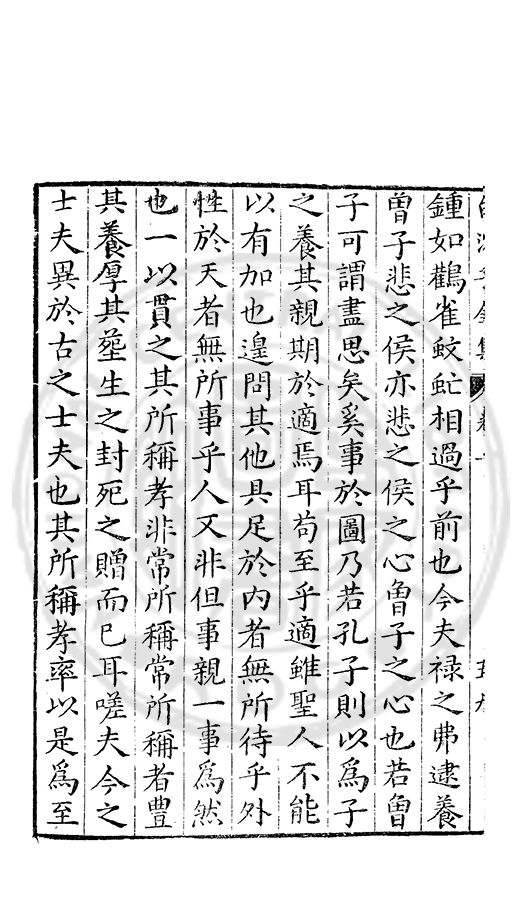 鍾如鸛雀蚊虻相過乎前也今夫祿之弗逮養
曾子悲之侯亦悲之侯之心曾子之心也若曾
子可謂盡思矣奚事於圖乃若孔子則以為子
之養其親期於適焉耳苟至乎適雖聖人不能
以有加也遑問其他具足於內者無所待乎外
性於天者無所事乎人又非但事親一事為然
也一以貫之其所稱孝非常所稱常所稱者豐
其養厚其塟生之封死之贈而已耳嗟夫今之
士夫異於古之士夫也其所稱孝率以是為至